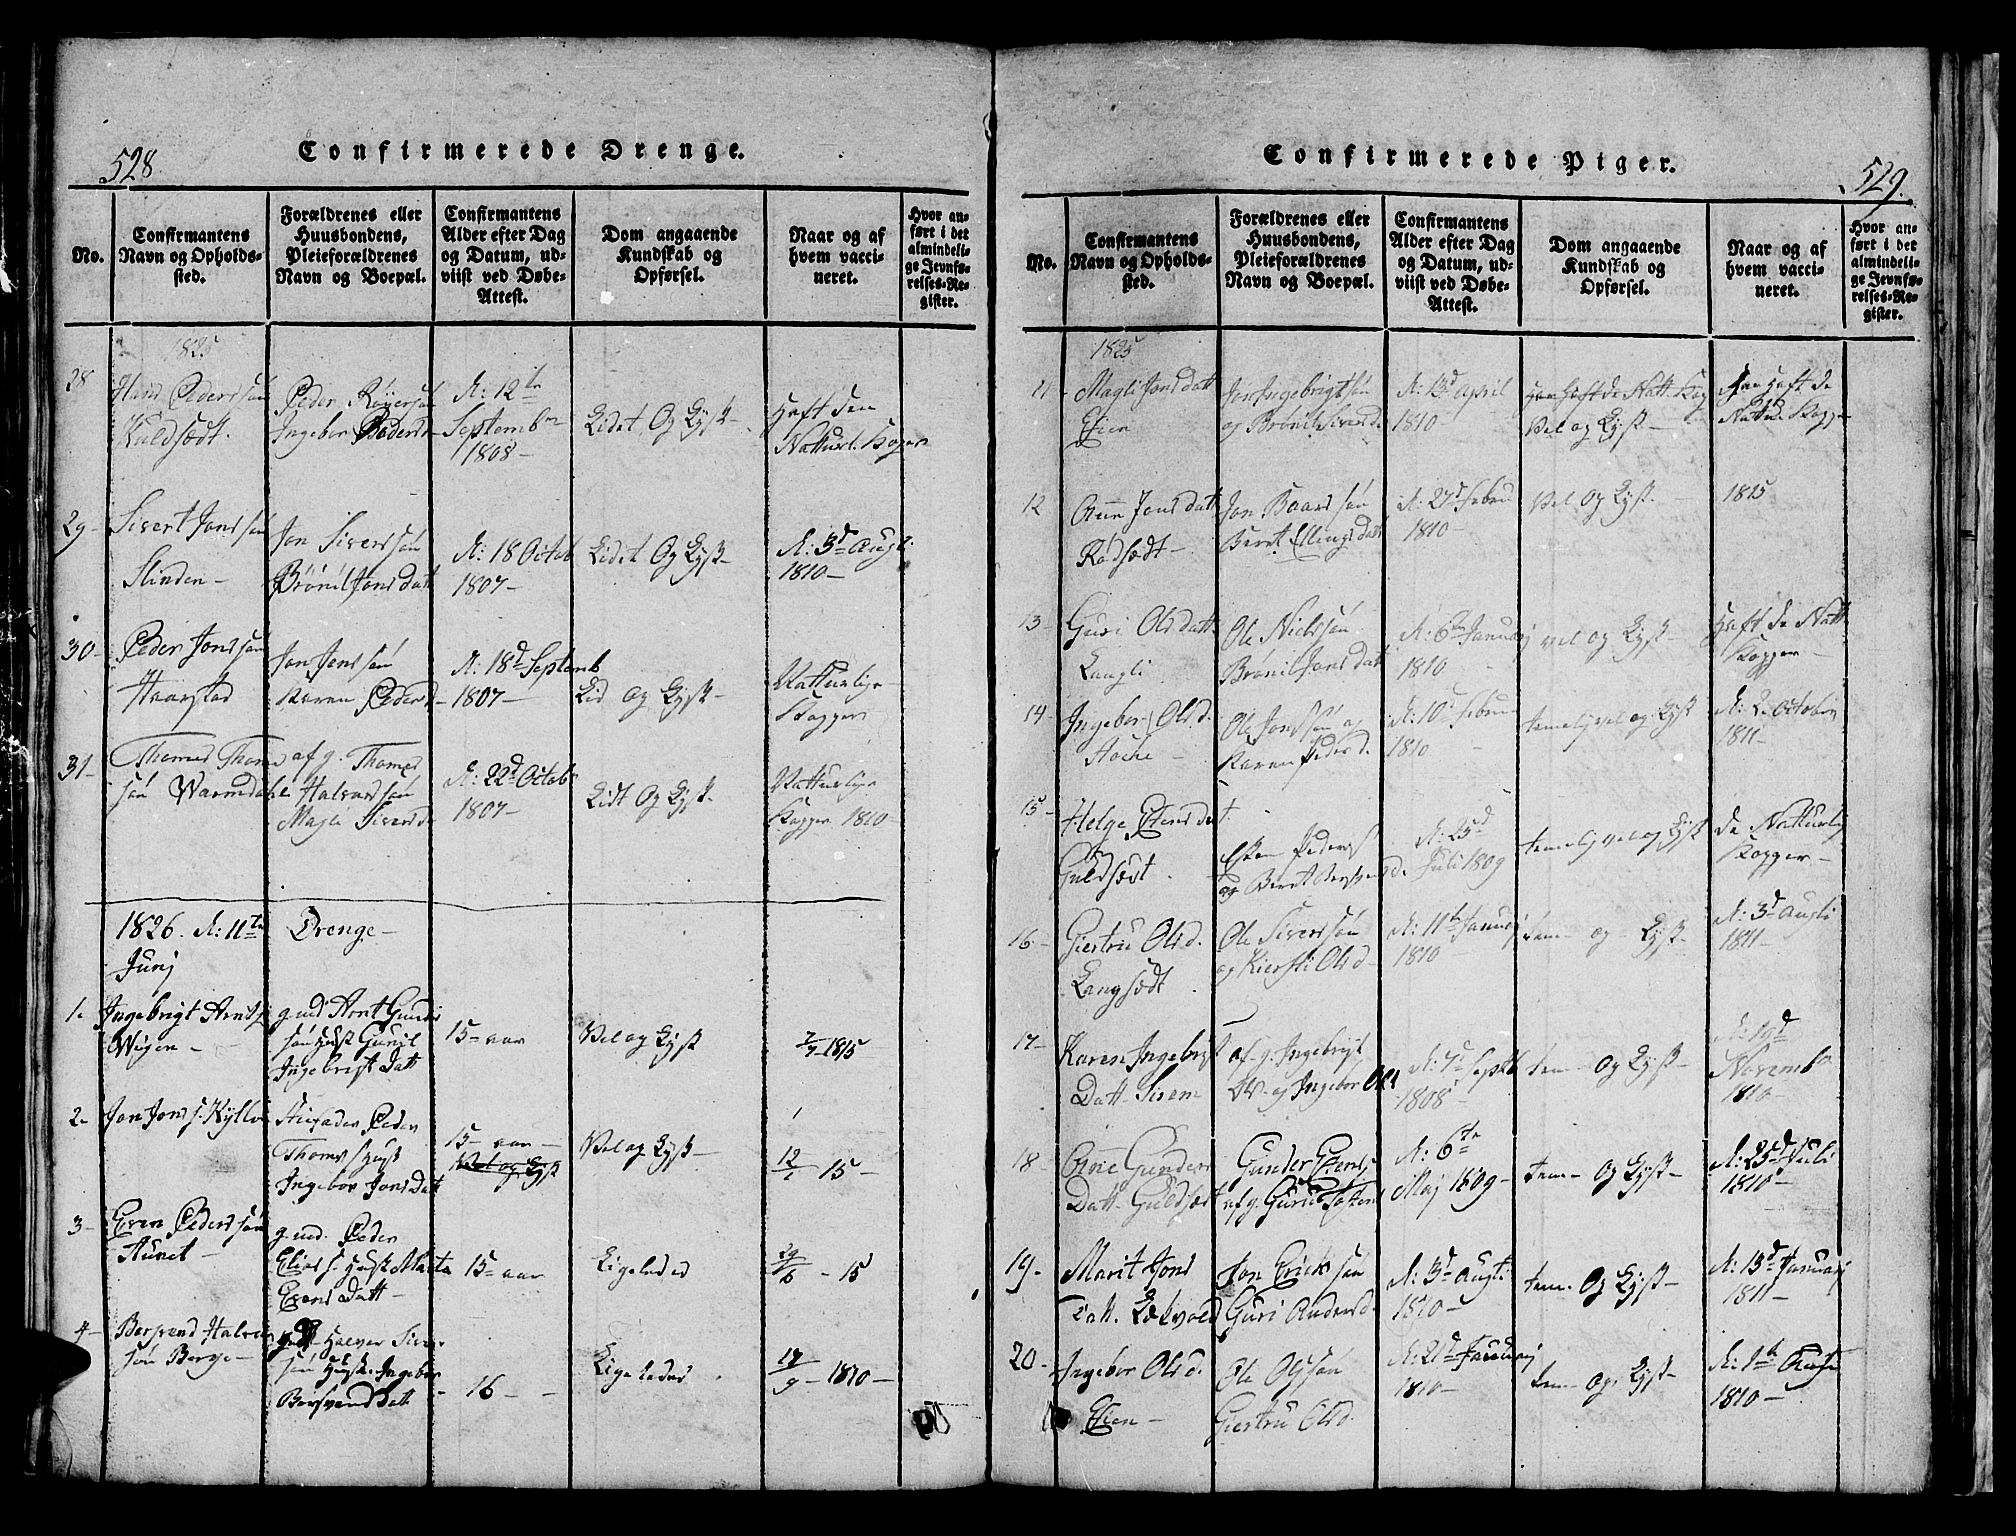 528
Confirmerede Drenge.
No.
Confirmantens Navn og Opholds-sted.
Forældrenes eller Huusbondens, Pleieforældrenes Navn og Boepæl.
Confirmantens Alder efter Dag og Datum, ud-viist ved Døbe-Attest.
Dom angaaende Kundskab og Opførsel.
Naar og af hvem vacci-neret.
Hvor an-ført i det almindeli-ge Jevnfø-relses-Re-gister.
1825
28 Hans Peders søn
Peder
Ingebor Peders
A: 12te
Septembr
1808
Lidet Og Lyst
Haft den
Natturl. Kopper
29 Sivert Jons søn
Slinden
Jon Sivers søn
Brønil Jons datt
A: 18 Octob
1807
Lidet Og Lyst
A: 3d Augti
1810
30 Peder Jons søn
Haarstad
Jon Jens søn
Karen Peders d
A: 18d Septemb
1807
Lid og Lyst
Natturlige
Kopper
31 Thomas Thoms
søn Warmdahl
af g. Thomas
Halvars søn
Magli Sivers d
A: 22d Octob
1807
Lidt Og Lyst
Natturlige
Kopper 1810
1826. A: 11te
Junj
Drenge
1. Ingebrigt Arnt s
Wigen
gmd Arnt Gundr
søn Hust Gunil
Ingebrigt Datt
15 aar
Vel og Lyst
2/7 1815
2. Jon Jons s. Kyllo
Peder
Thoms Hust
Ingebor Jons Datt
15 aar
Vel og Lyst
Vel og Lyst
12/7 15
3 Even Peders søn
Aunet
gmd. Peder
Elias s. Hust Marta
Evens Datt
15 aar
Ligeledes
29/6 - 15
4 Bersvend Halvor
søn Berge
gmd Halvor Siver
søn Hust. Ingebor
Bersvend Datt
16
Ligeledes
17/9 - 1810
Confirmerede Piger.
529.
No.
Confirmantens Navn og Opholds-sted.
Forældrenes eller Huusbondens, Pleieforældrenes Navn og Boepæl.
Confirmantens Alder efter Dag og Datum, ud-viist ved Døbe-Attest.
Dom angaaende Kundskab og Opførsel.
Naar og af hvem vacci-neret.
Hvor an-ført i det almindeli-ge Jevnfø-relses-Re-gister.
1825
11 Magli Jons datt
Eien
Jon Ingebrigt søn
og Brønil Sivers d.
A: 13d April
1810
Vel og Lyst
Haft de
Nattu. Kopper
12 Ann Jons datt
Rødsædt
Jon Baars søn
Beret Ellings datt
A: 27d Febru
1810
Vel Og Lyst
1815
13 Guri Ols datt.
Langli
Ole Niels søn
Brønil Jons datt
A: 6te Januarj
1810
vel og Lyst
Haft de Natt
Kopper
14 Ingebor Ols d.
Ole Jons søn og
Karen Peders d.
A: 10d Febru
1810
temelig vel og Lyst
A: 2. October
1811
15 Helge Estens datt.
Guldsædt
Esten Peders
og Beret d.
A: 25d
Juli 1809
temelig vel og Lyst
de Natturlig
Kopper
16 Giertru Ols d.
Langsædt
Ole Sivers søn
og Kiersti Ols d
A: 11te Januarj
1810
tem- og Lyst
A: 3d Augti
1811
17 Karen Ingebrigt
Datt
af g. Ingebrigt
og Ingebor Ols
A: 7d Septb
1808
tem- Og Lyst
A: 19d
Novemb
1810
18 Ane Gunders
Datt Guldsædt
Gunder Estens s
A: 6te
Maj 1809
tem- Og Lyst
A: 25d Juli
1810
19. Marit Jons
Datt.
Jon Erick søn
Guri Anders d.
A: 3d Augti
1810
tem- Og Lyst
A: 13d Januarj
1811
20 Ingebor Ols d.
Eien
Ole Ols søn
Giertru Ols d.
A: 21d Januarj
1810
tem- Og Lyst
A: 1te
1810